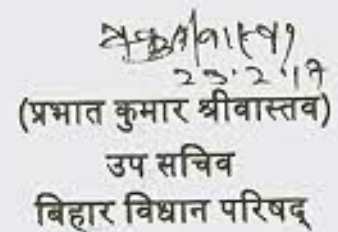 23.2.17
(प्रभात कुमार श्रीवास्तव)
उप सचिव
बिहार विधान परिषद्